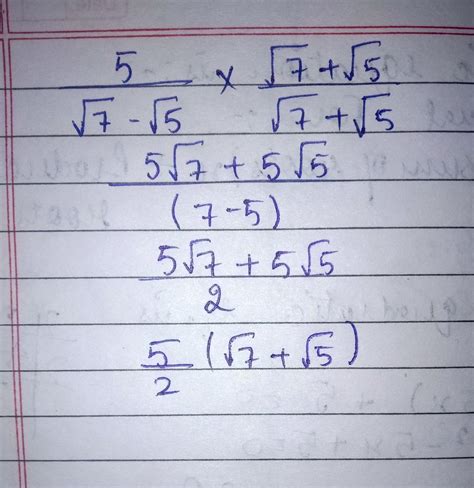 5/(√7 - √5) × (√7 + √5)/(√7 + √5)
(5√7 + 5√5)/(7-5)
(5√7 + 5√5)/2
5/2 (√7 + √5)